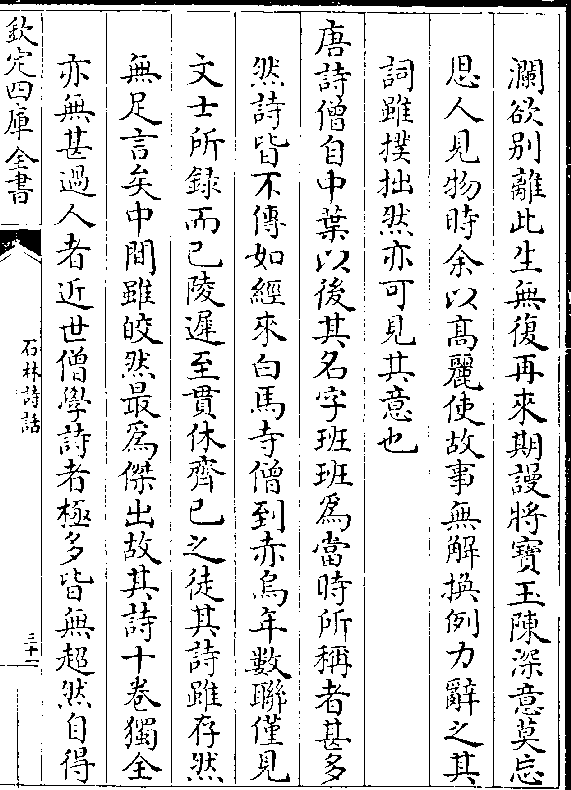 瀾欲别離此生無復再來期謾將寶玉陳深意莫忘
思人見物時余以髙麗使故事無解換例力辭之其
詞雖撲拙然亦可見其意也
唐詩僧自中葉以後其名字班班爲當時所稱者甚多
然詩皆不傳如經來白馬寺僧到赤烏年數聯僅見
文士所録而已陵遲至貫休齊已之徒其詩雖存然
無足言矣中間雖皎然最爲傑出故其詩十卷獨全
亦無甚過人者近世僧學詩者極多皆無超然自得
欽定四庫全書
石林詩話
三十一